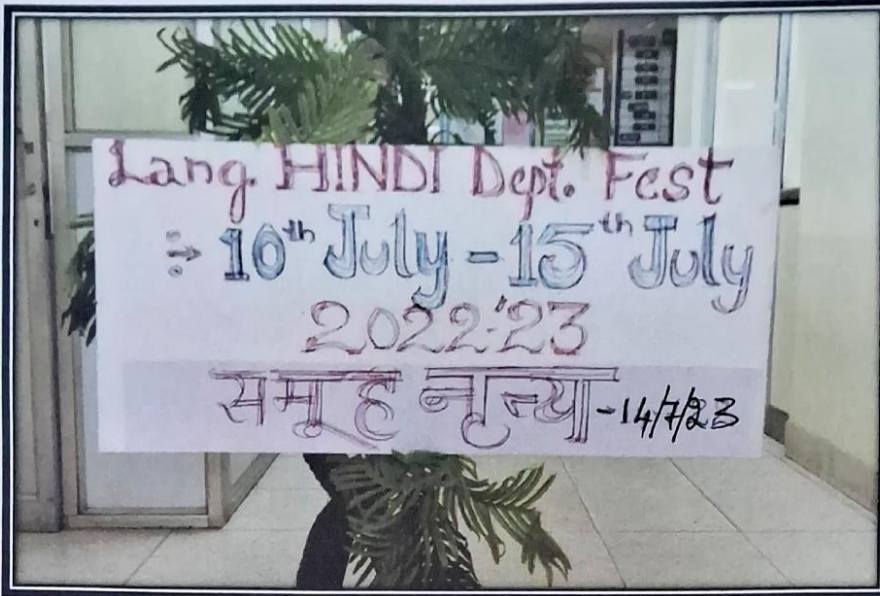 Lang. HINDI Dept. Fest
:→ 10th July - 15th July
2022-'23
समूह नृत्या - 14/7/23